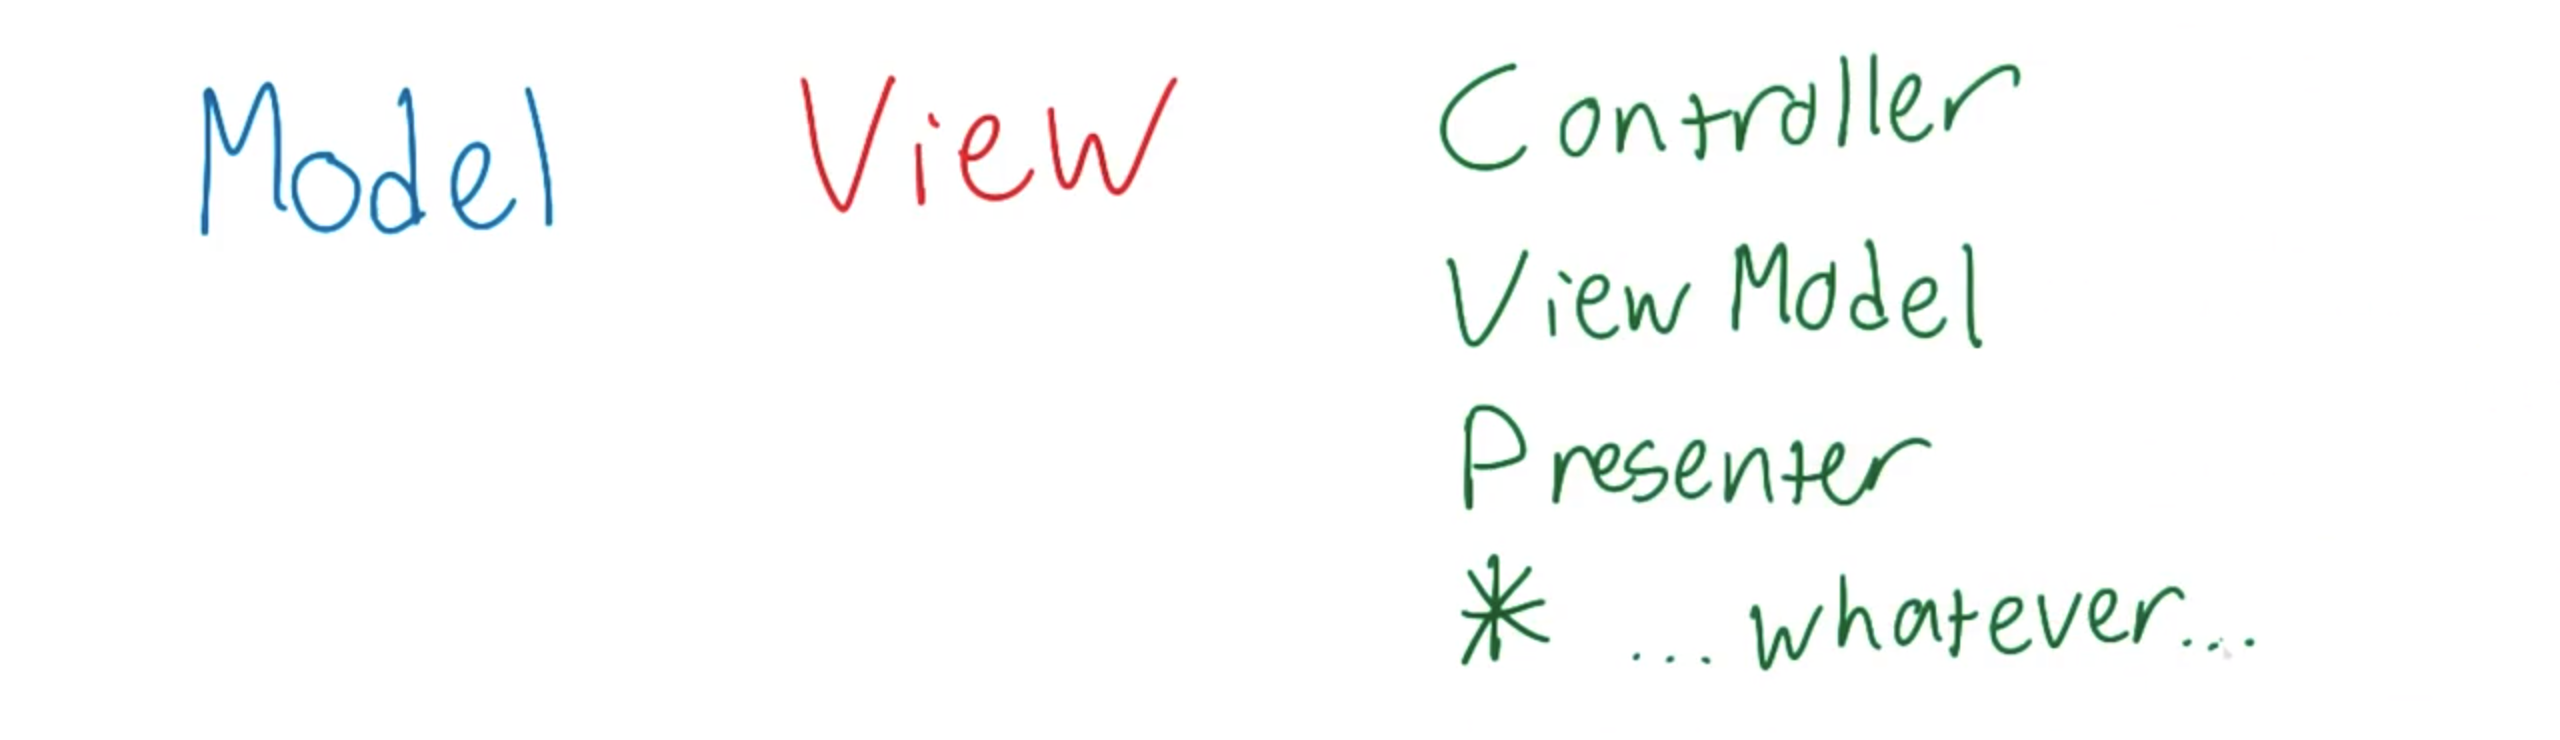 Model View Controller
View Model
Presenter
* ...whatever...